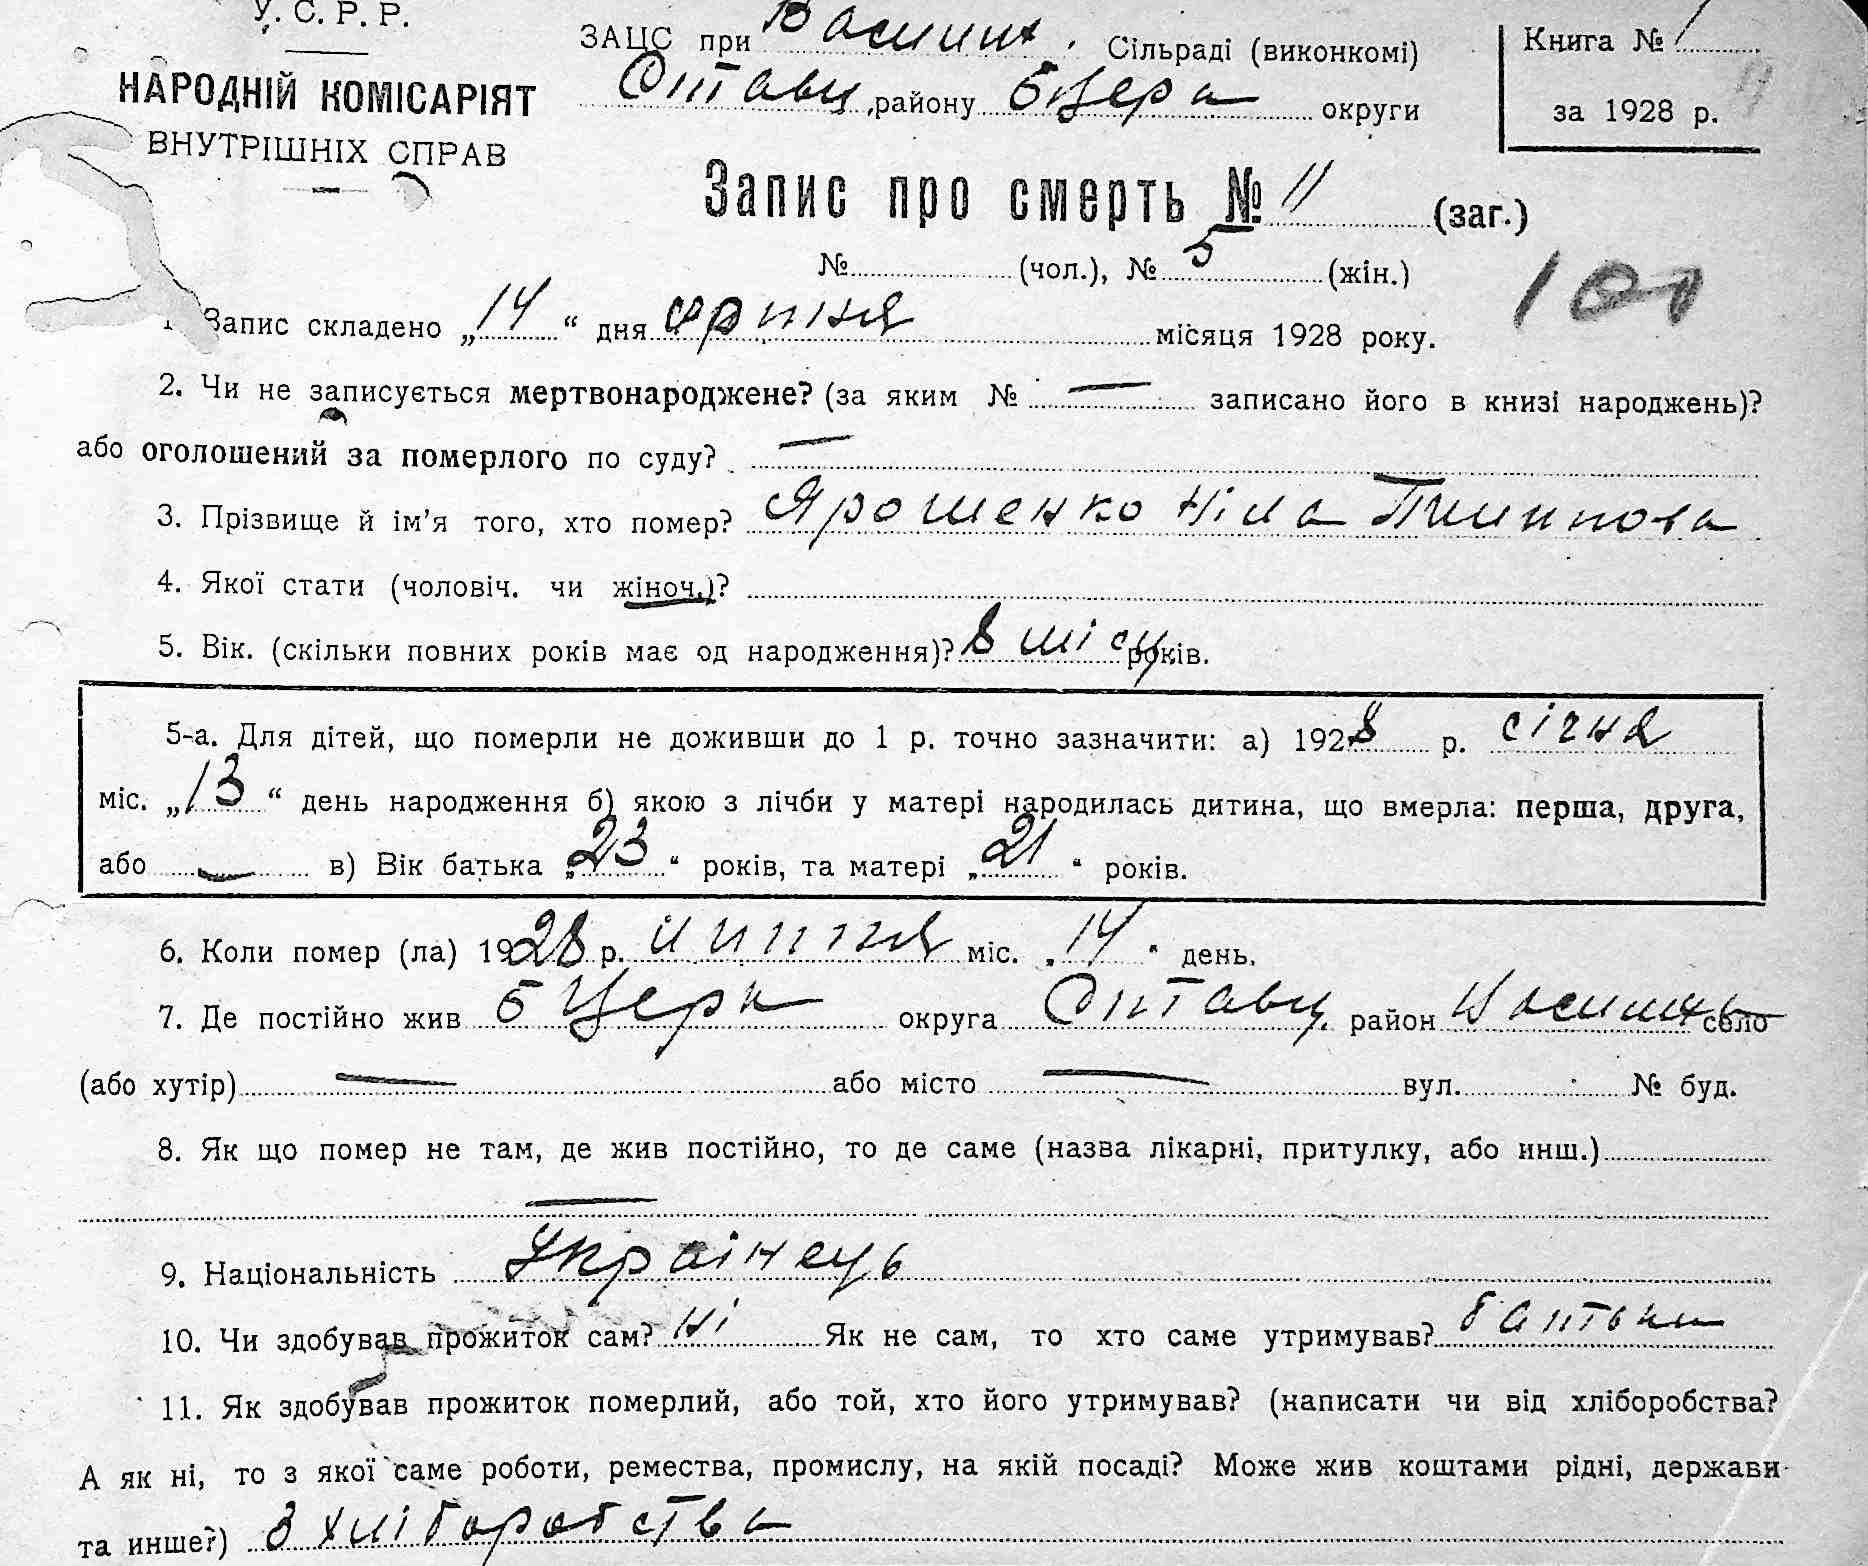 У. С. Р. Р.
НАРОДНІЙ КОМІСАРІЯТ
ВНУТРІШНІХ СПРАВ
ЗАЦС при Сільраді (виконкомі)
району БЦерк округи
Книга № 1
за 1928 р.
Запис про смерть № 11 (заг.)
№ (чол.), № 5 (жін.)
100
1. Запис складено „14“ дня місяця 1928 року.
2. Чи не записується мертвонароджене? (за яким № — записано його в книзі народжень)?
або оголошений за померлого по суду? —
3. Прізвище й ім’я того, хто помер? Ярошенко Ніла
4. Якої стати (чоловіч. чи жіноч.)?
5. Вік. (скільки повних років має од народження)? 8 місяц років.
5-а. Для дітей, що померли не доживши до 1 р. точно зазначити: а) 1928 р. січня
міс. „13“ день народження б) якою з лічби у матері народилась дитина, що вмерла: перша, друга,
або — в) Вік батька „23“ років, та матері „21“ років.
6. Коли помер (ла) 1928 р. міс. „14“ день.
7. Де постійно жив БЦерк округа район село
(або хутір) — або місто — вул. № буд.
8. Як що помер не там, де жив постійно, то де саме (назва лікарні, притулку, або инш.)
—
9. Національність Українець
10. Чи здобував прожиток сам? ні Як не сам, то хто саме утримував? батьки
11. Як здобував прожиток померлий, або той, хто його утримував? (написати чи від хліборобства?
А як ні, то з якої саме роботи, ремества, промислу, на якій посаді? Може жив коштами рідні, держави
та инше?) З хліборобства